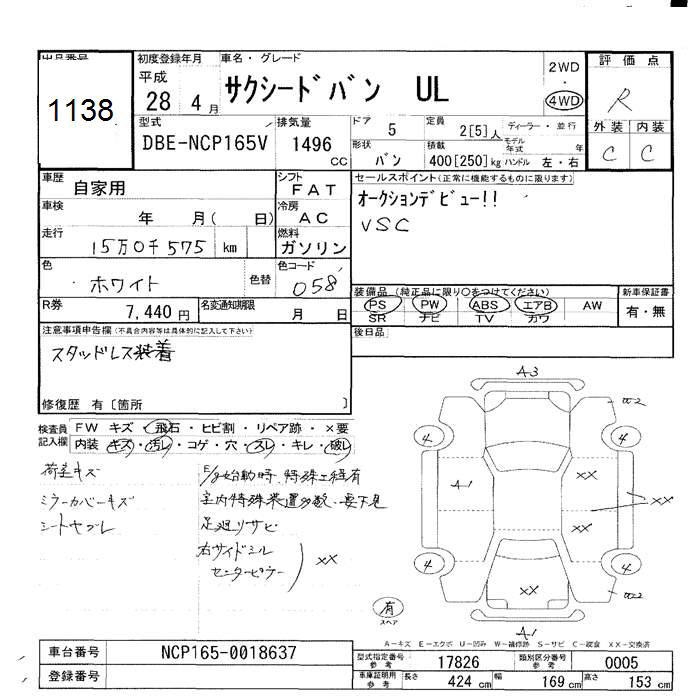 出品番号
1138
初度登録年月 車名・グレード
平成
28 4 月
サクシードバン UL
2WD
・
4WD
評価点
R
外装 内装
C C
型式
DBE-NCP165V
排気量
1496 CC
ドア 5
形状 バン
定員 2[5] 人
積載 400[250] kg
ディーラー・並行
モデル年式 年
ハンドル 左・右
車歴 自家用
シフト FAT
車検 年 月( 日)
冷房 AC
走行 15万0千575 km
燃料 ガソリン
色 ホワイト 色替
色コード 058
R券 7,440円
名変通知期限 月 日
セールスポイント(正常に機能するものに限ります)
オークションデビュー!!
VSC
装備品(純正品に限り〇をつけてください)
PS PW ABS エアB AW
SR ナビ TV カワ
新車保証書
有・無
後日品
注意事項申告欄(不具合内容等は具体的に記入して下さい)
スタッドレス装着
修復歴 有〔箇所 〕
検査員記入欄
FW キズ・飛石・ヒビ割・リペア跡・×要
内装・キズ・汚レ・コゲ・穴・スレ・キレ・破レ
荷室キズ
ミラーカバーキズ
シートヤブレ
E/g始動時、特殊工程有
室内特殊装置多数、要下見
足廻リサビ
右サイドシル
センターピラー
XX
A-3
4 4
A-1
XX
XX
XX
4 4
XX
A-1
有
スペア
A-キズ E-エクボ U-凹み W-補修跡 S-サビ C-腐食 XX-交換済
車台番号 NCP165-0018637
登録番号
型式指定番号 参考 17826
類別区分番号 参考 0005
車庫証明用 参考 長さ 424 cm 幅 169 cm 高さ 153 cm